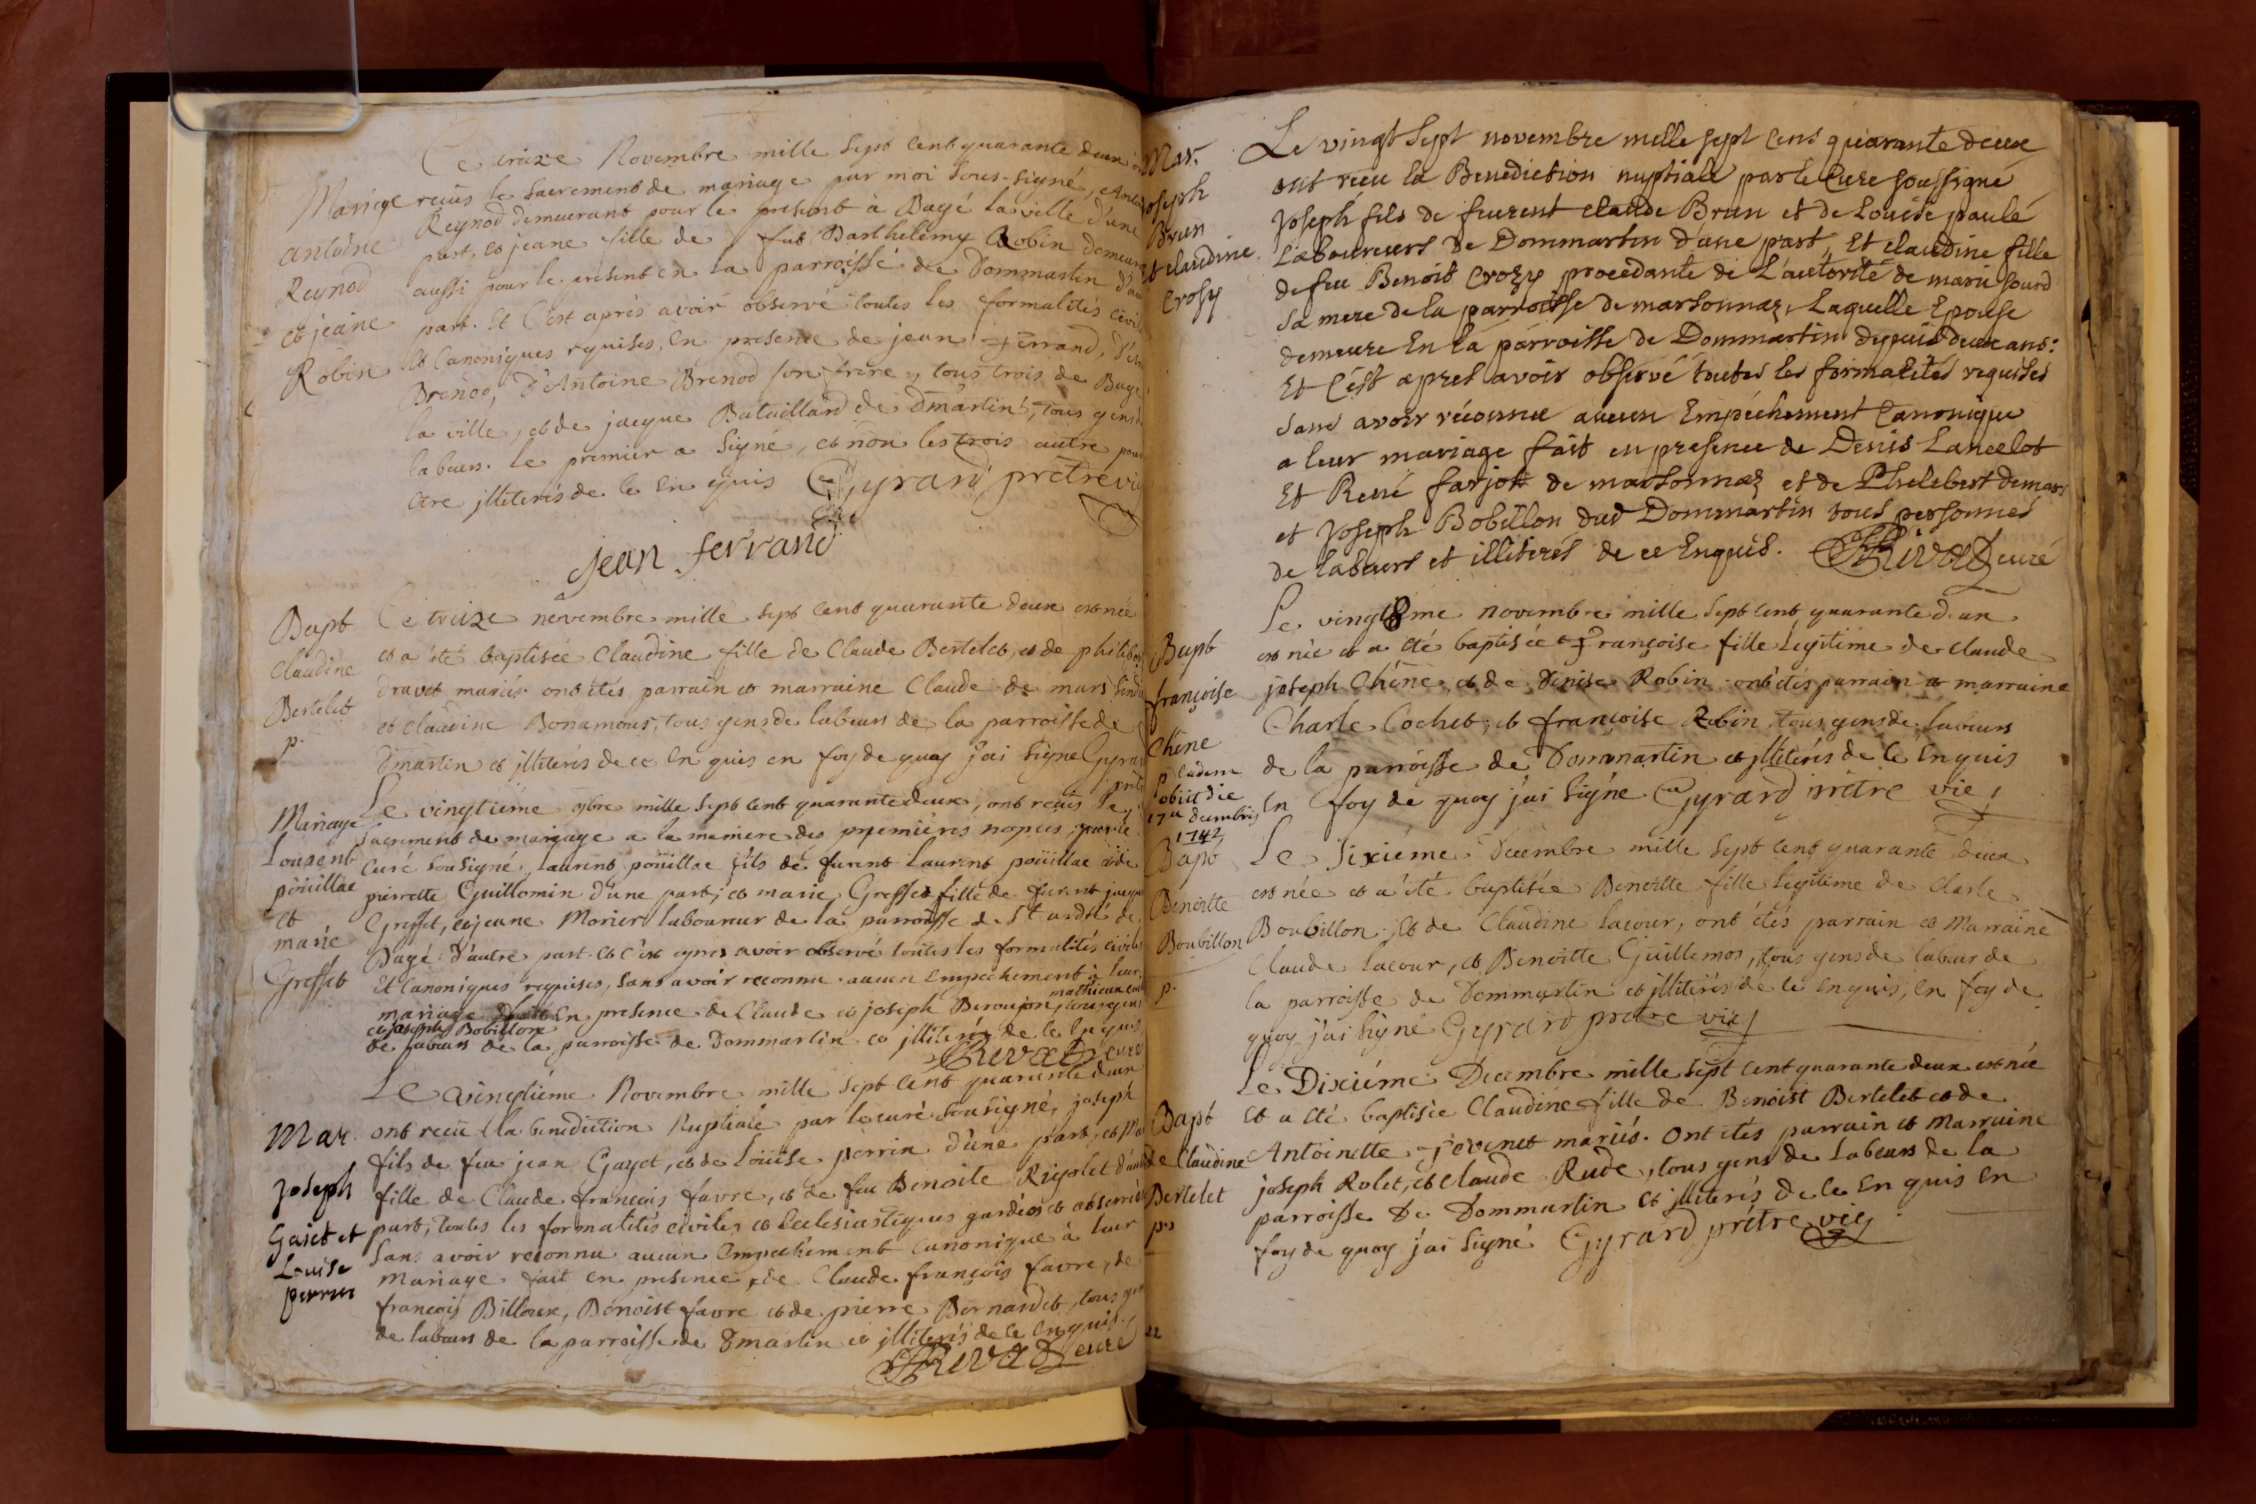 Ce treize Novembre mille sept cent quarante deux
Mariage
antoine
Reynod
et jeane
Robin
reçus le sacrement de mariage par moi sous-signé, Antoine
Reynod demeurant pour le present à Bagé la ville d'une
part, et jeane fille de fut Barthelemy Robin demeurant
aussi pour le present en la parroisse de Dommartin d'autre
part. Et C'est après avoir observé toutes les formalités civiles
et Canoniques requises, en presence de jean ferrand,
Brenod, d'Antoine Brenod son frere, tous trois de Bagé
la ville, et de jacque Bataillard de dmartin, tous gens de
labeur. le premier a signé, et non les trois autre pour
être jlliterés de ce Enquis Gyrard prêtre vic
jean ferrand
Bapt
Claudine
Bertelet
p.
Ce treize novembre mille sept cent quarante deux est née
et a été baptisée Claudine fille de Claude Bertelet, et de philiberte
dravet mariés. ont étés parrain et marraine Claude de mars
et claudine Bonamour, tous gens de labeurs de la parroisse de
dmartin et jlliterés de ce Enquis en foy de quoy j'ai signé Gyrard
prêtre
Mariage
Lousent
poüillae
et
marie
Gresset
Le vingtieme 9bre mille sept cent quarante deux, ont reçus le
sacrement de mariage a la maniere des premieres nopces, par le
Curé sousigné, Laurent poüillae fils de furent Laurent poüillae et de
pierrette Guillomin d'une part, et marie Gresset fille de furent jacque
Gresset, et jeane Morier laboureur de la parroisse de St andré de
Bagé d'autre part. et c'est apres avoir observé toutes les formalités civiles
Et canoniques requises, sans avoir reconnu aucun empechement à leur
mariage En presence de Claude et joseph Beroujon, mathieu tous gens
et joseph Bobillon
de labeurs de la parroisse de Dommartin et jlliterés de ce Enquis
Rivat curé
Mar.
Joseph
Gaiet et
Louise
perrin
Le vingtiéme Novembre mille sept cent quarante deux
ont recu la benediction Nuptiale par le curé sousigné, joseph
fils de feu jean Gayet, et de Loüise perrin d'une part, et
fille de Claude françois favre, et de feu Benoite Rigolet d'autre
part, toutes les formalités civiles et Ecclesiastiques gardées et observées
sans avoir reconnu aucun Empechement canonique à leur
Mariage fait en presence de Claude françois favre, de
françois Billoux, Benoist favre et de pierre Bernardet, tous gens
de labeurs de la parroisse de dmartin et jlliterés de ce Enquis.
Rivat curé
Mar.
joseph
Brun
et claudine
Crosy
Le vingt sept novembre mille sept cens quarante deux
ont recu la Benediction nuptiale par le Cure soussigné
Joseph fils de feurent claude Brun et de Louise paulé
Laboureurs de Dommartin d'une part, Et claudine fille
de feu Benoit Crozy procedante de L'autorité de marie sourd
sa mere de la parroisse de marsonnaz, Laquelle Epouse
demeure En la parroisse de Dommartin depuis deux ans:
Et C'est apres avoir observé toutes les formalités requises
sans avoir reconnu aucun Empéchement Canonique
a leur mariage fait en presence de Denis Lancelot
Et René farjot de marsonnaz et de Philebert demars
et Joseph Bobillon dud Dommartin tous personnes
de labeurs et illiterés de ce Enquis. Rivat curé
Bapt
françoise
Chêne
p eadem
obiit die
17a decembris
1742
Le vingt8me novembre mille sept cent quarante deux
est née et a été baptisée françoise fille Legitime de claude
joseph Chêne, et de Denise Robin ont étés parrain et marraine
Charle Cochet, et françoise Robin, tous gens de labeurs
de la parroisse de Dommartin et jlliterés de ce Enquis
En foy de quoy j'ai signé Gyrard prêtre vic,
Bapt
Benoitte
Boubillon
p.
Le Sixiéme Decembre mille sept cent quarante deux
est née et a été baptisée Benoitte fille legitime de Charle
Boubillon, et de Claudine lacour, ont étés parrain et Marraine
Claude lacour, et Benoitte Guillemos, tous gens de labeur de
la parroisse de Dommartin et jlliterés de ce enquis, En foy de
quoy j'ai signé Gyrard prêtre vic,
Bapt
de Claudine
Bertelet
prs
22
Le Dixiéme Decembre mille sept cent quarante deux est née
et a été baptisée Claudine fille de Benoist Bertelet et de
Antoinette fevenet mariés. Ont étés parrain et Marraine
joseph Rolet, et Claude Rude, tous gens de labeurs de la
parroisse de Dommartin et jlliterés de ce Enquis En
foy de quoy j'ai signé Gyrard prêtre vic